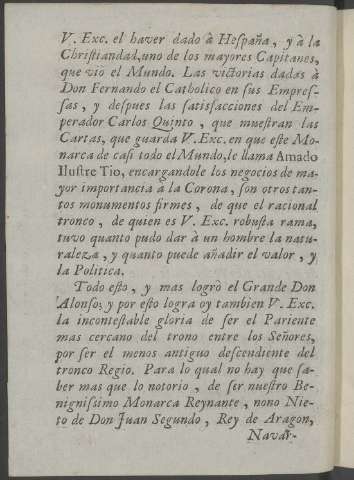 V. Exc. el haver dado à Hespaña, y à la
Christiandad, uno de los mayores Capitanes,
que viò el Mundo. Las victorias dadas à
Don Fernando el Catholico en sus Empres-
sas, y despues las satisfacciones del Em-
perador Carlos Quinto, que muestran las
Cartas, que guarda V. Exc. en que este Mo-
narca de casi todo el Mundo, le llama Amado
Ilustre Tio, encargandole los negocios de ma-
yor importancia à la Corona, son otros tan-
tos monumentos firmes, de que el racional
tronco, de quien es V. Exc. robusta rama,
tuvo quanto pudo dar à un hombre la natu-
raleza, y quanto puede añadir el valor, y
la Politica.
Todo esto, y mas logrò el Grande Don
Alonso; y por esto logra oy tambien V. Exc.
la incontestable gloria de ser el Pariente
mas cercano del trono entre los Señores,
por ser el menos antiguo descendiente del
tronco Regio. Para lo qual no hay que sa-
ber mas que lo notorio, de ser nuestro Be-
nignissimo Monarca Reynante, nono Nie-
to de Don Juan Segundo, Rey de Aragon,
Navar-